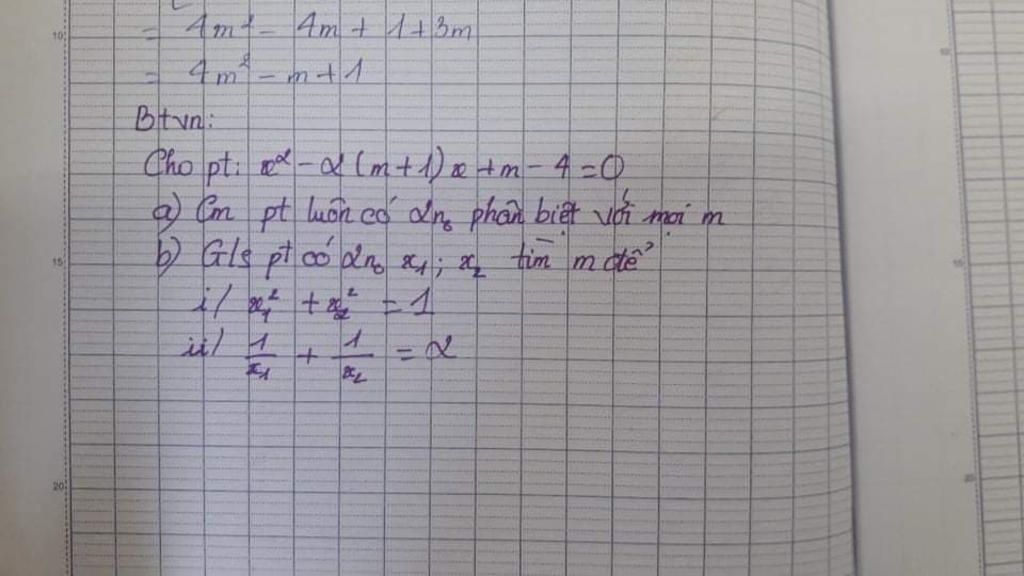 = 4m² - 4m + 1 + 3m
= 4m² - m + 1
Btvn:
Cho pt: x² - 2(m+1)x + m - 4 = 0
a) Cm pt luôn có 2n₀ phân biệt với mọi m
b) G/s pt có 2n₀ x₁; x₂ tìm m để
i/ x₁² + x₂² = 1
ii/ 1/x₁ + 1/x₂ = 2
10
15
20